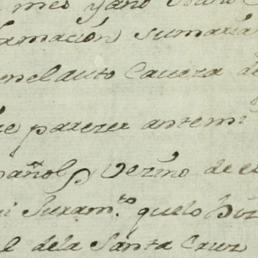 mes y año
rmacion sumaria
en el auto Caveza de
parezer antemi
pañol Vezino de e
i Juram.to que lo hiz
l dela Santa Cruz